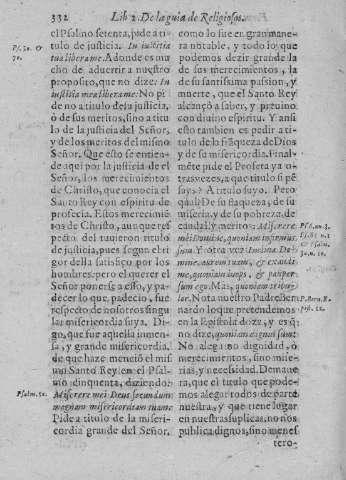 332 Lib 2. De la guia de Religiosos.
el Psalmo setenta, pide a ti-
tulo de justicia. In iustitia
tua libera me. Adonde es mu
cho de aduertir a nuestro
proposito, que no dize: In
iustitia mea libera me: No pi
de no a titulo de la justicia,
ò de sus meritos, sino a titu
lo de la justicia del Señor,
y de los meritos del mismo
Señor. Que esto se entien-
de aqui por la justicia de el
Señor, los merecimientos
de Christo, que conocia el
Santo Rey con espiritu de
profecia. Estos merecimié
tos de Christo, aunque res
pecto del tuuieron titulo
de justicia, pues segun el ri-
gor della satisfizo por los
hombres, pero el querer el
Señor ponerse a esto, y pa-
decer lo que padecio, fue
respecto de nosotros singu
lar misericordia suya. Di-
go, que fue aquella inmen-
sa, y grande misericordia,
de que haze menciõ el mis
mo Santo Rey, en el Psal-
mo cinquenta, diziendo:
Miserere mei Deus secundum
magnam misericordiam tuam.
Pide a titulo de la miseri-
cordia grande del Señor,
Psalm. 50.
como lo fue en gran mane-
ra notable, y todo lo que
podemos dezir grande la
de sus merecimientos, la
de su santissima passion, y
muerte, que el Santo Rey
alcançò a saber, y preuino
con diuino espiritu. Y ansi
esto tambien es pedir a ti-
tulo de la flaqueza de Dios
y de su misericordia. Final-
mẽte pide el Profeta ya o-
tras vezes, a que titulo si pẽ
says? A titulo suyo. Pero
qual? De su flaqueza, de su
miseria, y de su pobreza, de
caudal, y merito: Miserere
mei Domine, quoniam infirmus
sum. Y otra vez: Inclina Do-
mine aurem tuam, & exaudi
me, quoniam inops, & pauper
sum ego. Mas,
lar. Nota nuestro Padre S. Ber
nardo lo que pretendemos
en la Epistola doze, y es q̃
no dize, quoniam dignus sum:
No alega no dignidad, ò
merecimientos, sino mise-
rias, y necessidad. De mane
ra, que lo que podemos
alegar todos de parte
nuestra, y que tiene lugar
en nuestras suplicas, no nos
publica dignos, sino menes
tero-